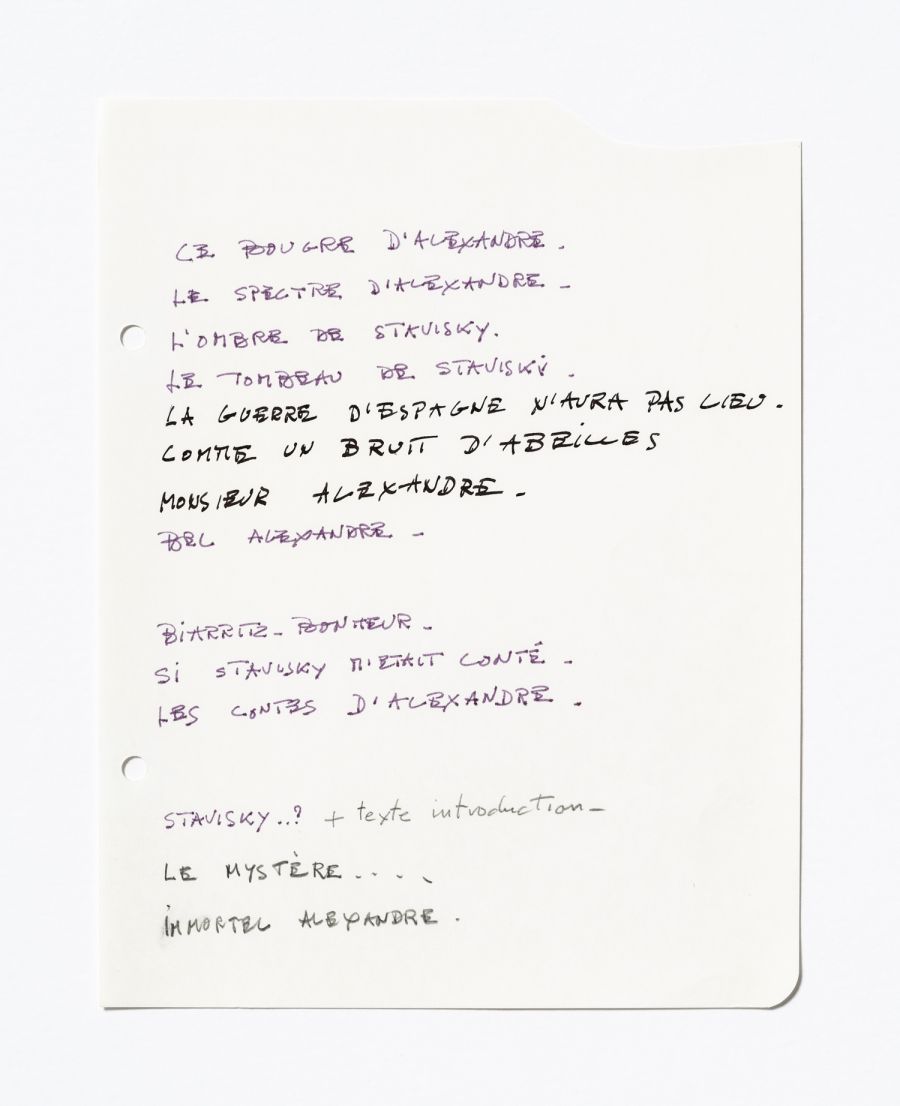 CE BOUGRE D'ALEXANDRE.
LE SPECTRE D'ALEXANDRE –
L'OMBRE DE STAVISKY.
LE TOMBEAU DE STAVISKY.
LA GUERRE D'ESPAGNE N'AURA PAS LIEU.
COMME UN BRUIT D'ABEILLES
MONSIEUR ALEXANDRE –
BEL ALEXANDRE –
BIARRITZ – BONHEUR –
SI STAVISKY M'ETAIT CONTÉ –
LES CONTES D'ALEXANDRE.
STAVISKY..? + texte introduction –
LE MYSTÈRE....
IMMORTEL ALEXANDRE.